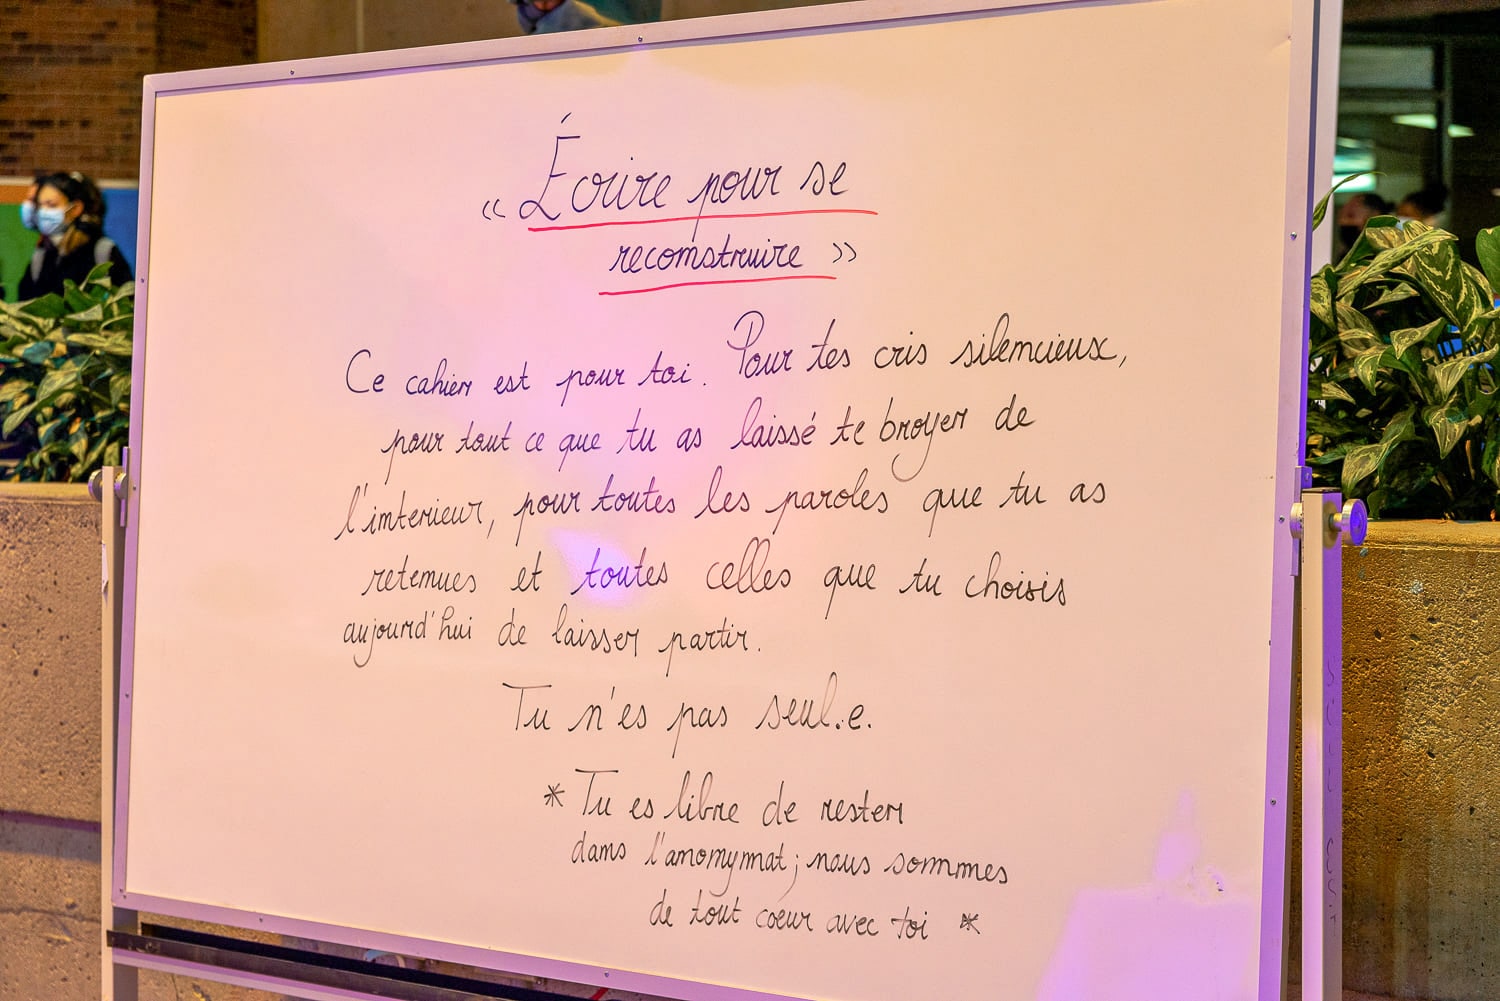 « Écrire pour se
reconstruire »
Ce cahier est pour toi. Pour tes cris silencieux,
pour tout ce que tu as laissé te broyer de
l'interieur, pour toutes les paroles que tu as
retenues et toutes celles que tu choisis
aujourd'hui de laisser partir.
Tu n'es pas seul.e.
* Tu es libre de rester
dans l'anonymnat; nous sommes
de tout coeur avec toi *